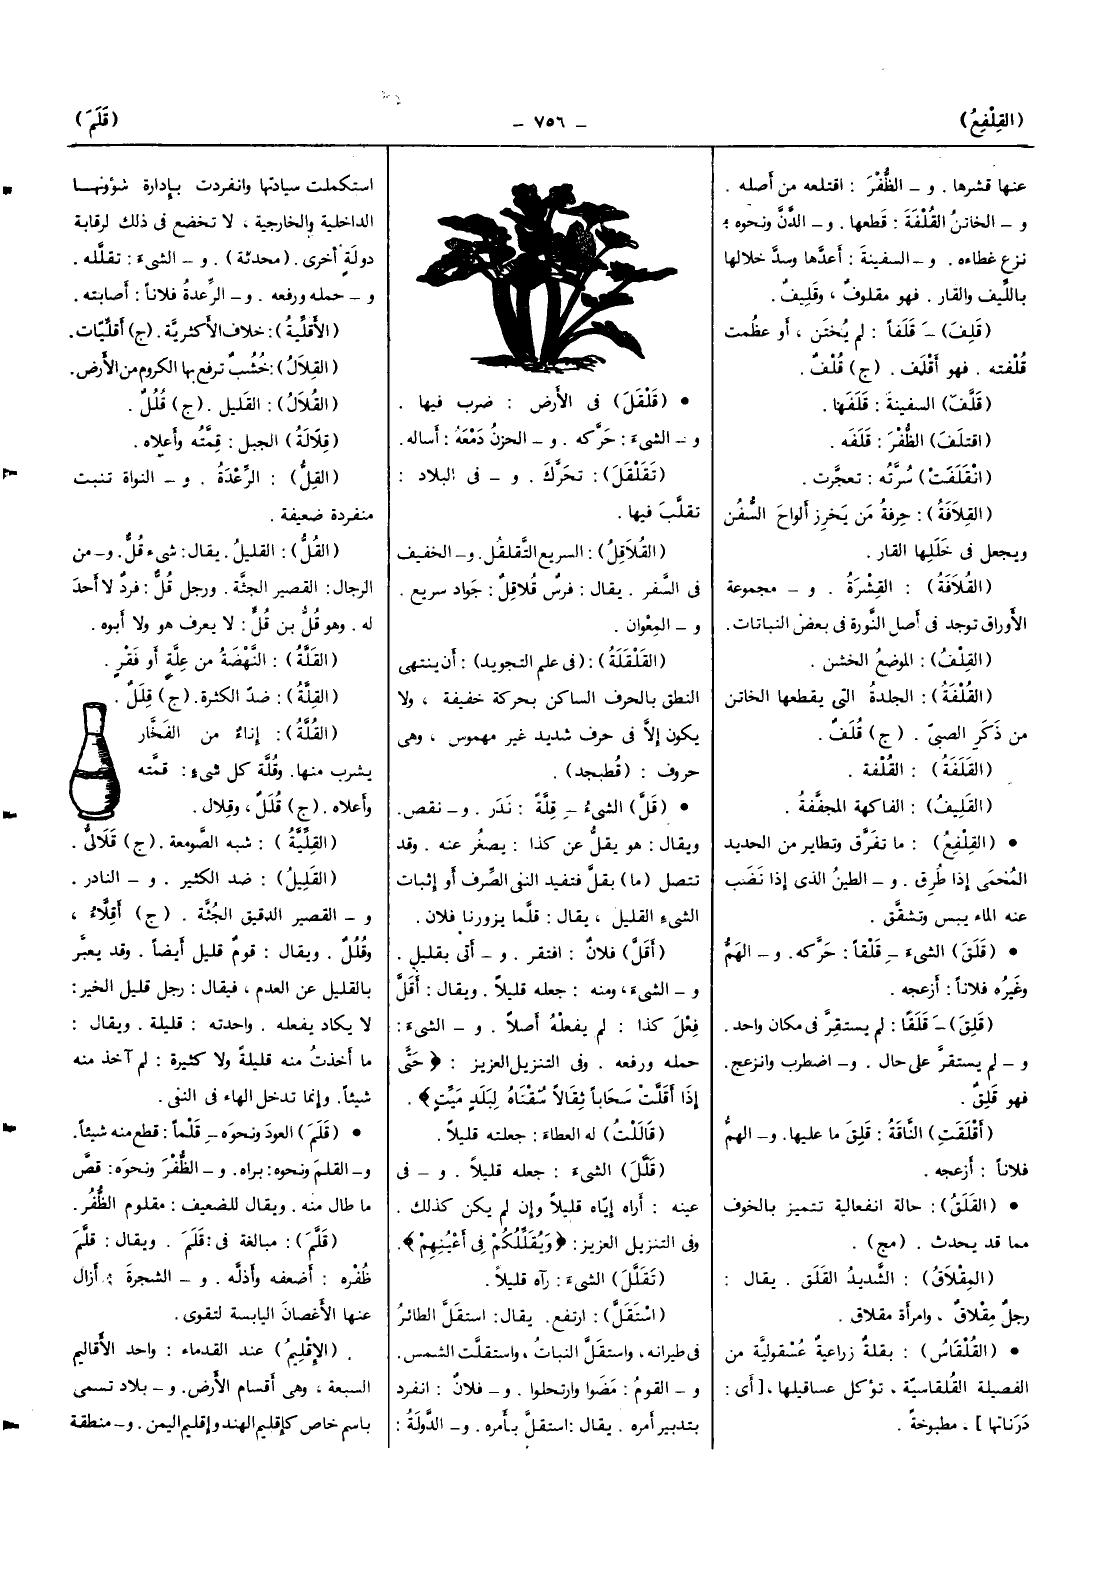 (القِلْفِعُ)
– ٧٥٦ –
(قَلَمَ)
عنها قشرها . و – الظُّفْرَ : اقتلعه من أصله .
و – الخاتنُ القُلْفَةَ : قَطعها . و – الدَّنَّ ونحوه :
نزع غطاءه . و – السفينةَ : أعدَّها وسدَّ خلالها
باللِّيف والقار . فهو مقلوفٌ ، وَقلِيفٌ .
(قَلِفَ) ـَ قَلَفاً : لم يُختَن ، أو عظُمت
قُلْفته . فهو أَقْلَف . (ج) قُلْفٌ .
(قَلَّفَ) السفينةَ : قَلَفَها .
(اقتلَفَ) الظُّفْرَ : قَلَفَه .
(انْقَلَفَتْ) سُرَّتُه : تعجَّرت .
(القِلاَفَةُ) : حِرفةُ مَن يَخرِز ألواحَ السُّفُن
ويجعل فى خَلَلِها القار .
(القُلاَفَةُ) : القِشْرَةُ . و – مجموعة
الأوراق توجد فى أصل النَّورة فى بعض النباتات .
(القِلْفُ) : الموضعُ الخشن .
(القُلْفَةُ) : الجلدةُ التى يقطعها الخاتن
من ذَكَرِ الصبىّ . (ج) قُلَفٌ .
(القَلَفَةُ) : القُلْفة .
(القَلِيفُ) : الفاكهة المجفَّفةُ .
• (القِلْفِعُ) : ما تفَرَّق وتطاير من الحديد
المُحْمَى إذا طُرِق . و – الطينُ الذى إذا نَضَب
عنه الماء يبس وتشقَّق .
• (قَلَقَ) الشىءَ ـِ قَلْقاً : حَرَّكه . و – الهَمُّ
وغَيرُه فلاناً : أزعجه .
(قَلِقَ) ـَ قَلَقًا : لم يستقِرَّ فى مكان واحد .
و – لم يستقرَّ على حال . و – اضطرب وانزعج .
فهو قَلِقٌ .
(أَقْلَقَتِ) النَّاقةُ : قَلِقَ ما عليها . و – الهمُّ
فلاناً : أزعجه .
• (القَلَقُ) : حالة انفعالية تتميز بالخوف
مما قد يحدث . (مج) .
(المِقْلاَقُ) : الشَّديدُ القَلَق . يقال :
رجلٌ مِقْلاقٌ ، وامرأة مقلاق .
• (القُلْقَاسُ) : بقلة زراعيةٌ عُسْقولية من
الفصيلة القُلقاسيّة ، تؤكل عساقيلها ، [ أى :
دَرَناتها ] – مطبوخةً .
• (قَلْقَلَ) فى الأرض : ضرب فيها .
و – الشىءَ : حَرَّكه . و – الحزنُ دَمْعَهُ : أساله .
(تَقَلْقَلَ) : تحَرَّكَ . و – فى البلاد :
تقلَّبَ فيها .
(القُلاَقِلُ) : السريع التَّقلقُل . و – الخفيف
فى السَّفر . يقال : فرسٌ قُلاقِلٌ : جَواد سريع .
و – المِعْوان .
(القَلْقَلَةُ) : (فى علم التجويد) : أن ينتهى
النطق بالحرف الساكن بحركة خفيفة ، ولا
يكون إلاَّ فى حرف شديد غير مهموس ، وهى
حروف : (قُطبجد) .
• (قَلَّ) الشىءُ ـِ قِلةً : نَدَر . و – نقص .
ويقال : هو يقلُّ عن كذا : يصغُر عنه . وقد
تتصل (ما) بقلَّ فتفيد النفى الصِّرف أو إثبات
الشىءِ القليل ، يقال : قلَّما يزورنا فلان .
(أَقَلَّ) فلانٌ : افتقر . و – أتى بقليل .
و – الشىءَ ، ومنه : جعله قليلاً . ويقال : أَقَلَّ
فِعْلَ كذا : لم يفعلْهُ أصلاً . و – الشىءَ :
حمله ورفعه . وفى التنزيل العزيز : ﴿ حَتَّى
إِذَا أَقَلَّتْ سَحَاباً ثِقَالاً سُقْنَاهُ لِبَلَدٍ مَيِّتٍ ﴾ .
(قَالَلْتُ) له العطاءَ : جعلته قليلاً .
(قَلَّلَ) الشىءَ : جعله قليلاً . و – فى
عينه : أراه إيّاه قليلاً وإن لم يكن كذلك .
وفى التنزيل العزيز : ﴿ وَيُقَلِّلُكُمْ فِى أَعْيُنِهِمْ ﴾ .
(تَقَلَّلَ) الشىءَ : رآه قليلاً .
(اسْتَقَلَّ) : ارتفع . يقال : استقلَّ الطائرُ
فى طيرانه ، واستقلَّ النباتُ ، واستقلَّت الشمس .
و – القومُ : مَضَوا وارتحلوا . و – فلانٌ : انفرد
بتدبير أمره . يقال : استقلَّ بأمره . و – الدَّولةُ :
استكملت سيادتها وانفردت بإدارة شؤونها
الداخلية والخارجية ، لا تخضع فى ذلك لرقابة
دولةٍ أخرى . (محدثة) . و – الشىءَ : تقلَّله .
و – حمله ورفعه . و – الرِّعدةُ فلاناً : أصابته .
(الأَقلِّيةُ) : خلاف الأكثريَّة . (ج) أقلِّيّات .
(القِلاَلُ) : خُشُبٌ ترفع بها الكروم من الأرض .
(القُلاَلُ) : القليل . (ج) قُلُلٌ .
(قِلاَلَةُ) الجبل : قِمَّتُه وأعلاه .
(القِلُّ) : الرِّعْدَةُ . و – النواة تنبت
منفردة ضعيفة .
(القُلُّ) : القليلُ . يقال : شىء قُلٌّ . و – من
الرجال : القصير الجثَّة . ورجل قُلٌّ : فردٌ لا أحدَ
له . وهو قُلُّ بن قُلٍّ : لا يعرف هو ولا أبوه .
(القَلَّةُ) : النَّهْضَةُ من عِلَّةٍ أو فَقْرٍ .
(القِلَّةُ) : ضدّ الكثرة . (ج) قِلَلٌ .
(القُلَّةُ) : إناءٌ من الفَخَّار
يشرب منها . وقُلَّة كل شىءٍ : قمَّته
وأعلاه . (ج) قُلَلٌ ، وقِلال .
(القِلِّيَّةُ) : شبه الصَّومعة . (ج) قَلاَلىُّ .
(القَلِيلُ) : ضد الكثير . و – النادر .
و – القصير الدقيق الجُثَّة . (ج) أَقِلاَّءُ ،
وقُلُلٌ . ويقال : قومٌ قليل أيضاً . وقد يعبَّر
بالقليل عن العدم ، فيقال : رجل قليل الخير :
لا يكاد يفعله . واحدته : قليلة . ويقال :
ما أخذتُ منه قليلةً ولا كثيرة : لم آخذ منه
شيئاً . وإنما تدخل الهاء فى النفى .
• (قَلَمَ) العودَ ونحوَه ـِ قَلْماً : قطع منه شيئاً .
و – القلمَ ونحوه : براه . و – الظُّفْرَ ونحوَه : قصَّ
ما طال منه . ويقال للضعيف : مقلوم الظُّفُر .
(قَلَّمَ) : مبالغة فى : قَلَمَ . ويقال : قلَّمَ
ظُفْره : أضعفه وأذلَّه . و – الشجرةَ : أزال
عنها الأغصانَ اليابسة لتقوى .
(الإِقْلِيمُ) عند القدماء : واحد الأقاليم
السبعة ، وهى أقسام الأرض . و – بلاد تسمى
باسم خاص كإقليم الهند وإقليم اليمن . و – منطقة